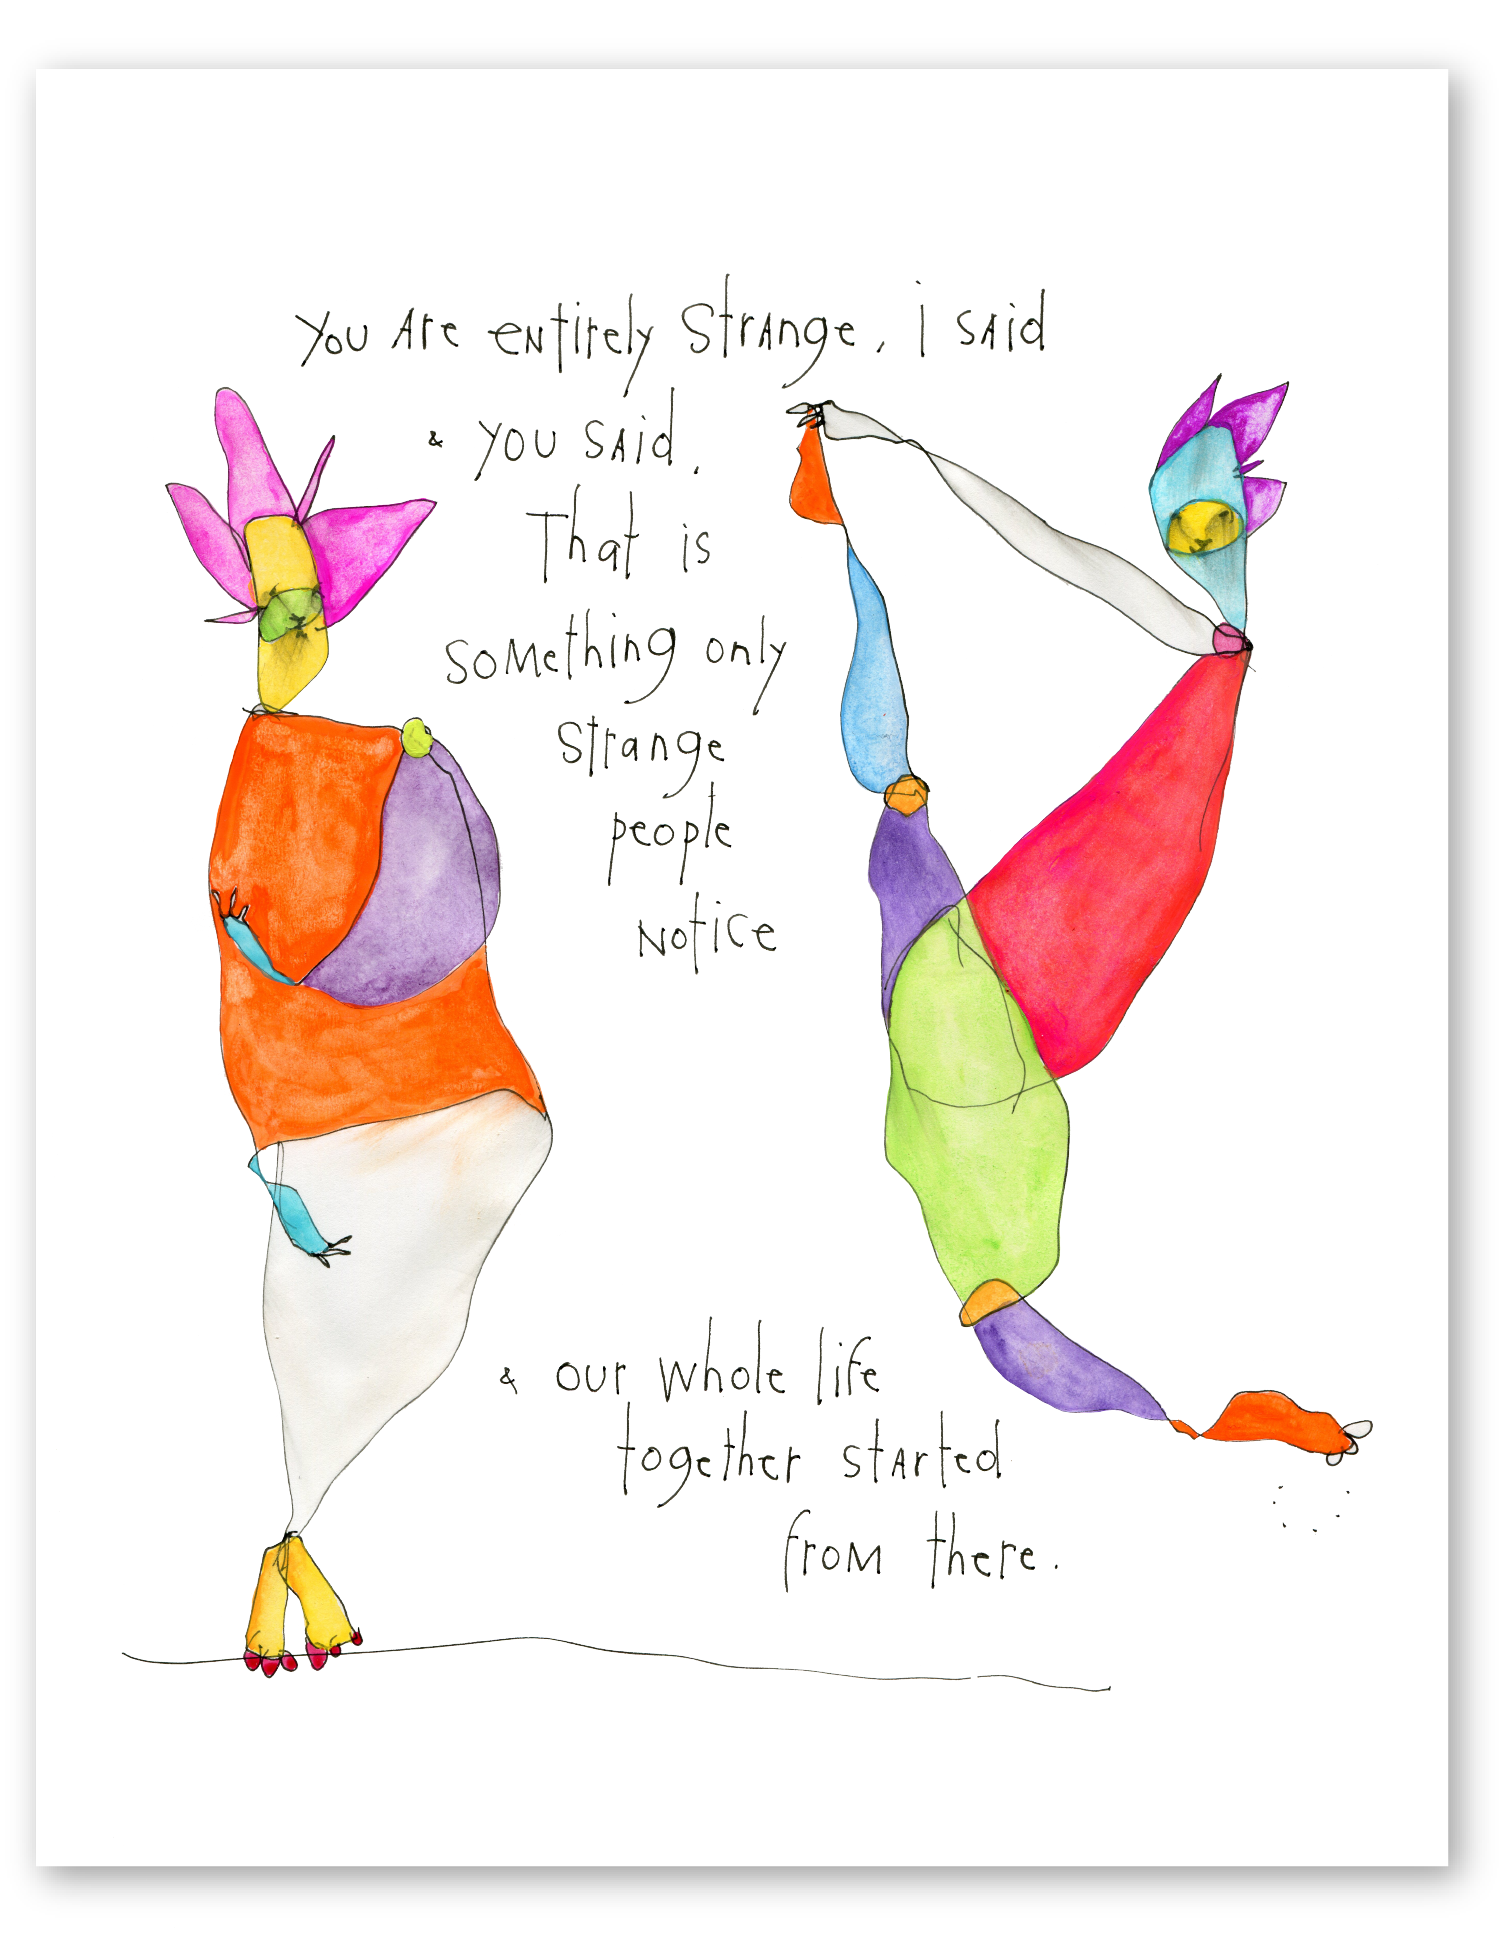 You Are entirely Strange, i said
& you said,
That is
something only
strange
people
notice
& our whole life
together started
from there.